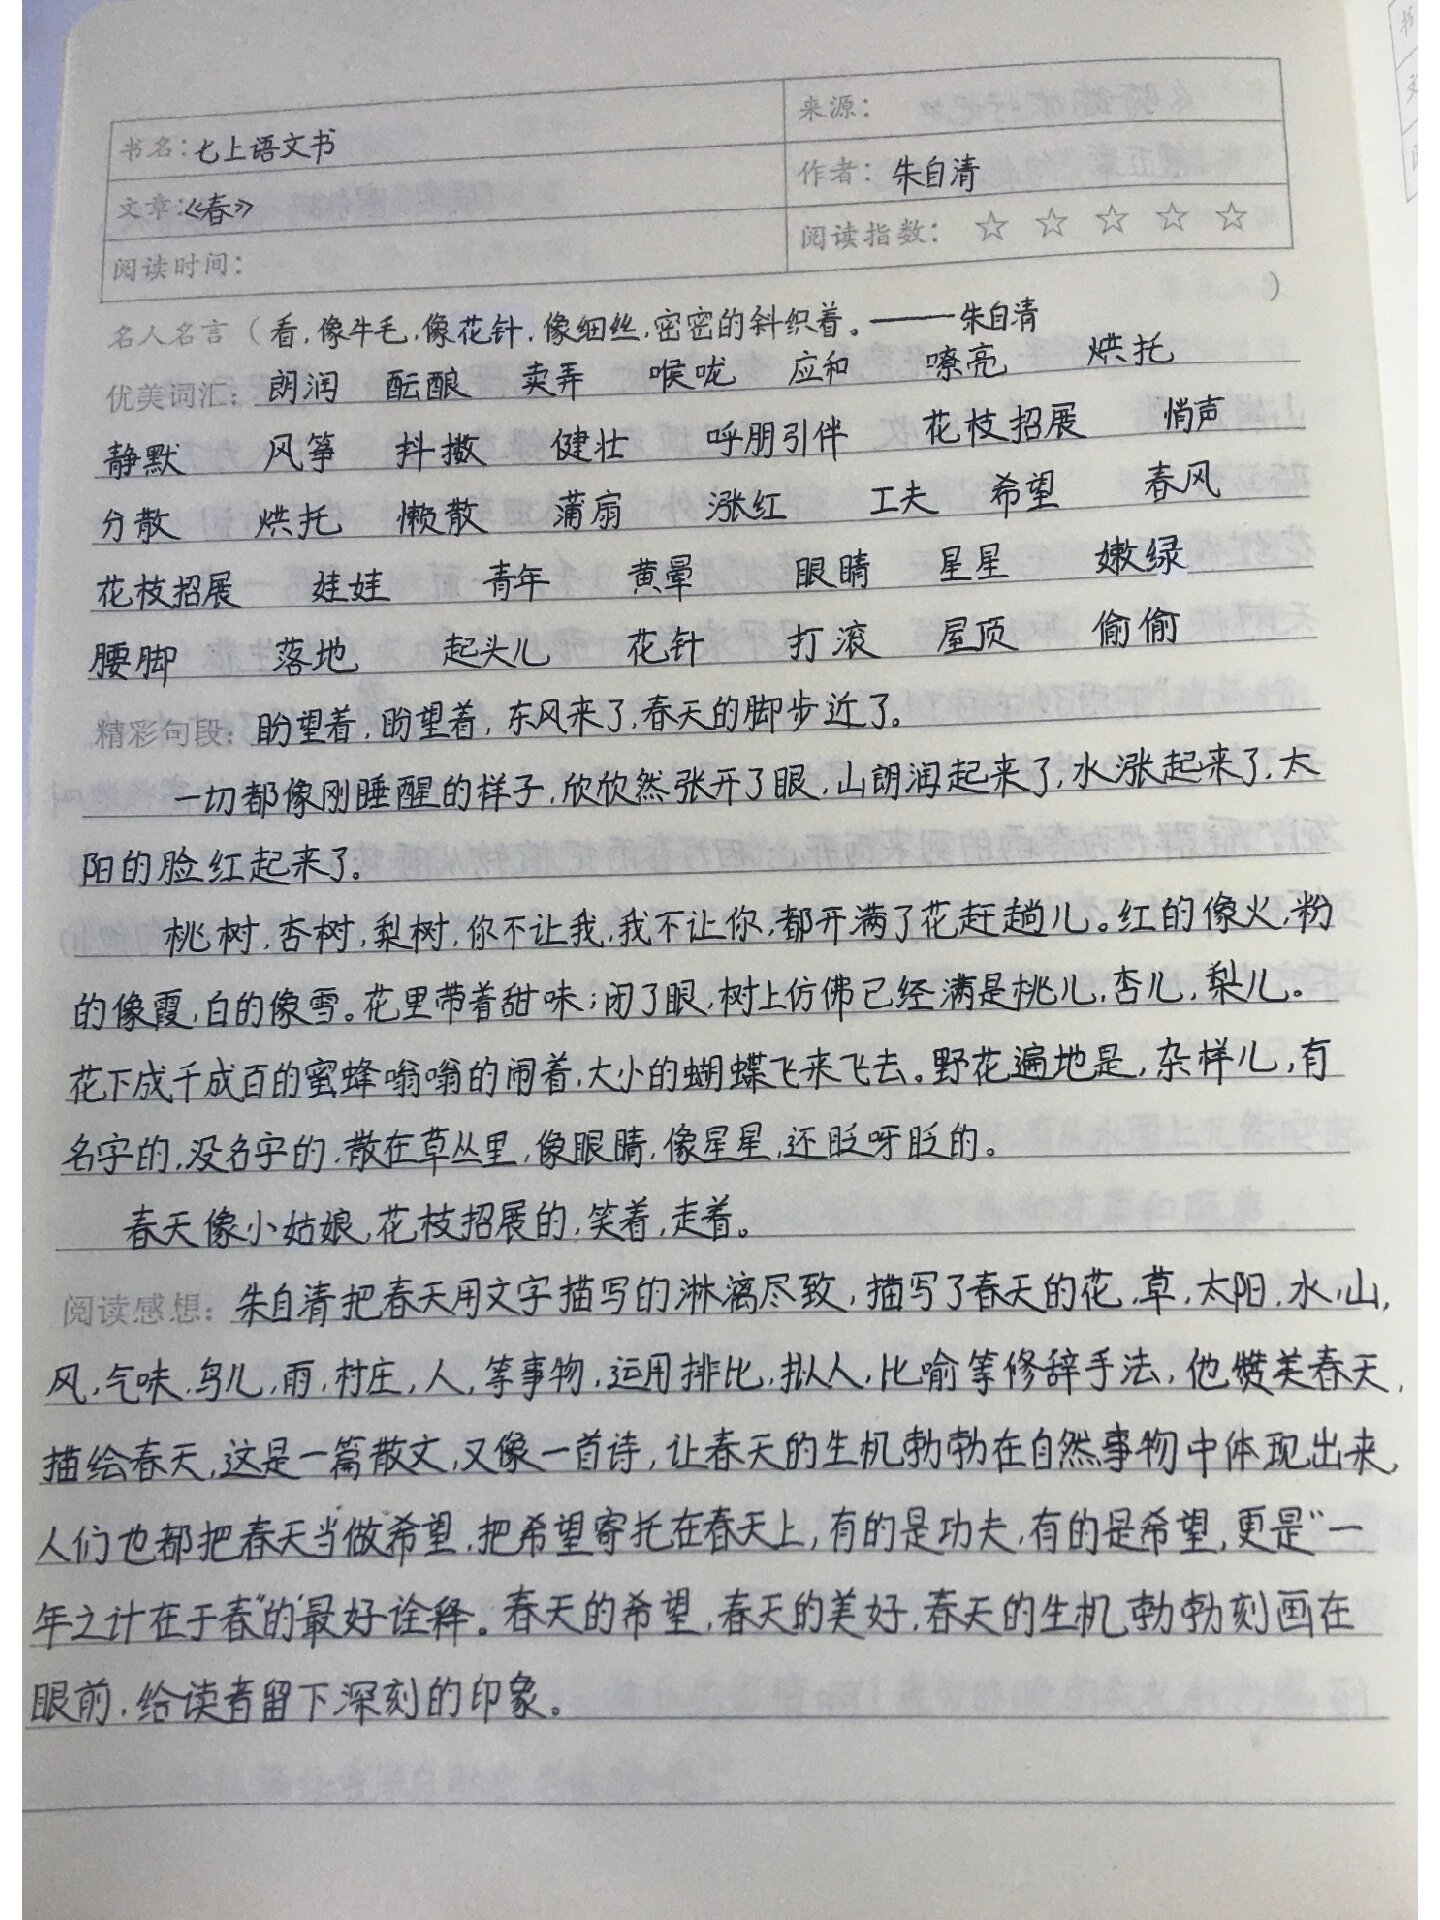 书名：七上语文书
来源：
文章：《春》
作者：朱自清
阅读时间：
阅读指数：☆ ☆ ☆ ☆ ☆
名人名言（看，像牛毛，像花针，像细丝，密密的斜织着。——朱自清）
优美词汇：朗润 酝酿 卖弄 喉咙 应和 嘹亮 烘托
静默 风筝 抖擞 健壮 呼朋引伴 花枝招展 悄声
分散 烘托 懒散 蒲扇 涨红 工夫 希望 春风
花枝招展 娃娃 青年 黄晕 眼睛 星星 嫩绿
腰脚 落地 起头儿 花针 打滚 屋顶 偷偷
精彩句段：盼望着，盼望着，东风来了，春天的脚步近了。
一切都像刚睡醒的样子，欣欣然张开了眼，山朗润起来了，水涨起来了，太
阳的脸红起来了。
桃树，杏树，梨树，你不让我，我不让你，都开满了花赶趟儿。红的像火，粉
的像霞，白的像雪。花里带着甜味；闭了眼，树上仿佛已经满是桃儿，杏儿，梨儿。
花下成千成百的蜜蜂嗡嗡的闹着，大小的蝴蝶飞来飞去。野花遍地是，杂样儿，有
名字的，没名字的，散在草丛里，像眼睛，像星星，还眨呀眨的。
春天像小姑娘，花枝招展的，笑着，走着。
阅读感想：朱自清把春天用文字描写的淋漓尽致，描写了春天的花，草，太阳，水，山，
风，气味，鸟儿，雨，村庄，人，等事物，运用排比，拟人，比喻等修辞手法，他赞美春天，
描绘春天，这是一篇散文，又像一首诗，让春天的生机勃勃在自然事物中体现出来，
人们也都把春天当做希望，把希望寄托在春天上，有的是功夫，有的是希望，更是“一
年之计在于春”的最好诠释。春天的希望，春天的美好，春天的生机勃勃刻画在
眼前，给读者留下深刻的印象。